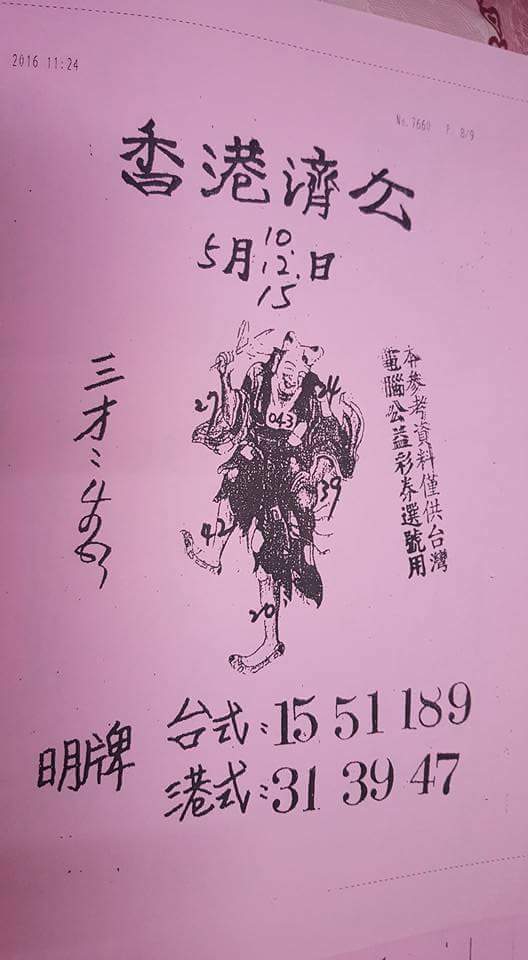 2016 11:24
No. 7660 P. 8/9
香港濟公
5月10.12.15日
三才:
27
24
043
39
42
20
本參考資料僅供台灣
電腦公益彩券選號用
明牌
台式:15 51 189
港式:31 39 47